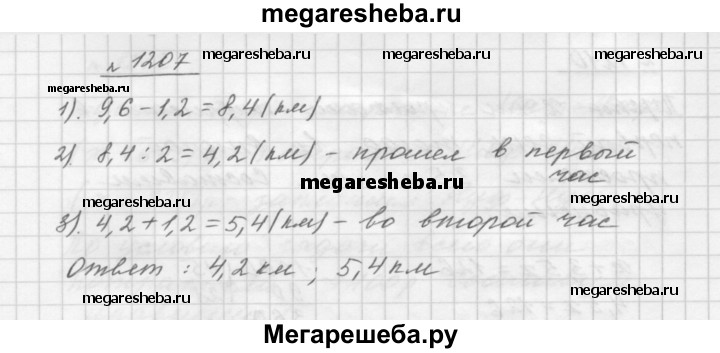 megaresheba.ru
№ 1207 megaresheba.ru megaresheba.ru
megaresheba.ru
1). 9,6 - 1,2 = 8,4 (км)
2). 8,4 : 2 = 4,2 (км) - прошел в первый
час
megaresheba.ru megaresheba.ru megaresheba.ru
3). 4,2 + 1,2 = 5,4 (км) - во второй час
Ответ : 4,2 км ; 5,4 км
megaresheba.ru megaresheba.ru megaresheba.ru
Мегарешеба.ру